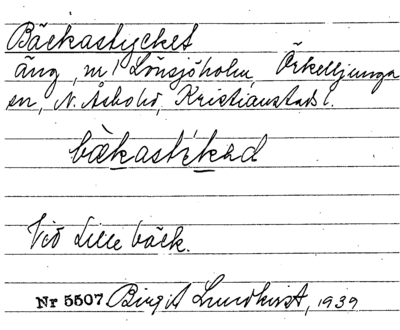 Bäckastycket
äng, m/ Lönsjöholm, Örkelljunga
sn, N. Åsbohd, Kristianstads l.
bækastikəd
Vid Lille bäck.
Nr 5507 Birgit Lundkvist, 1939